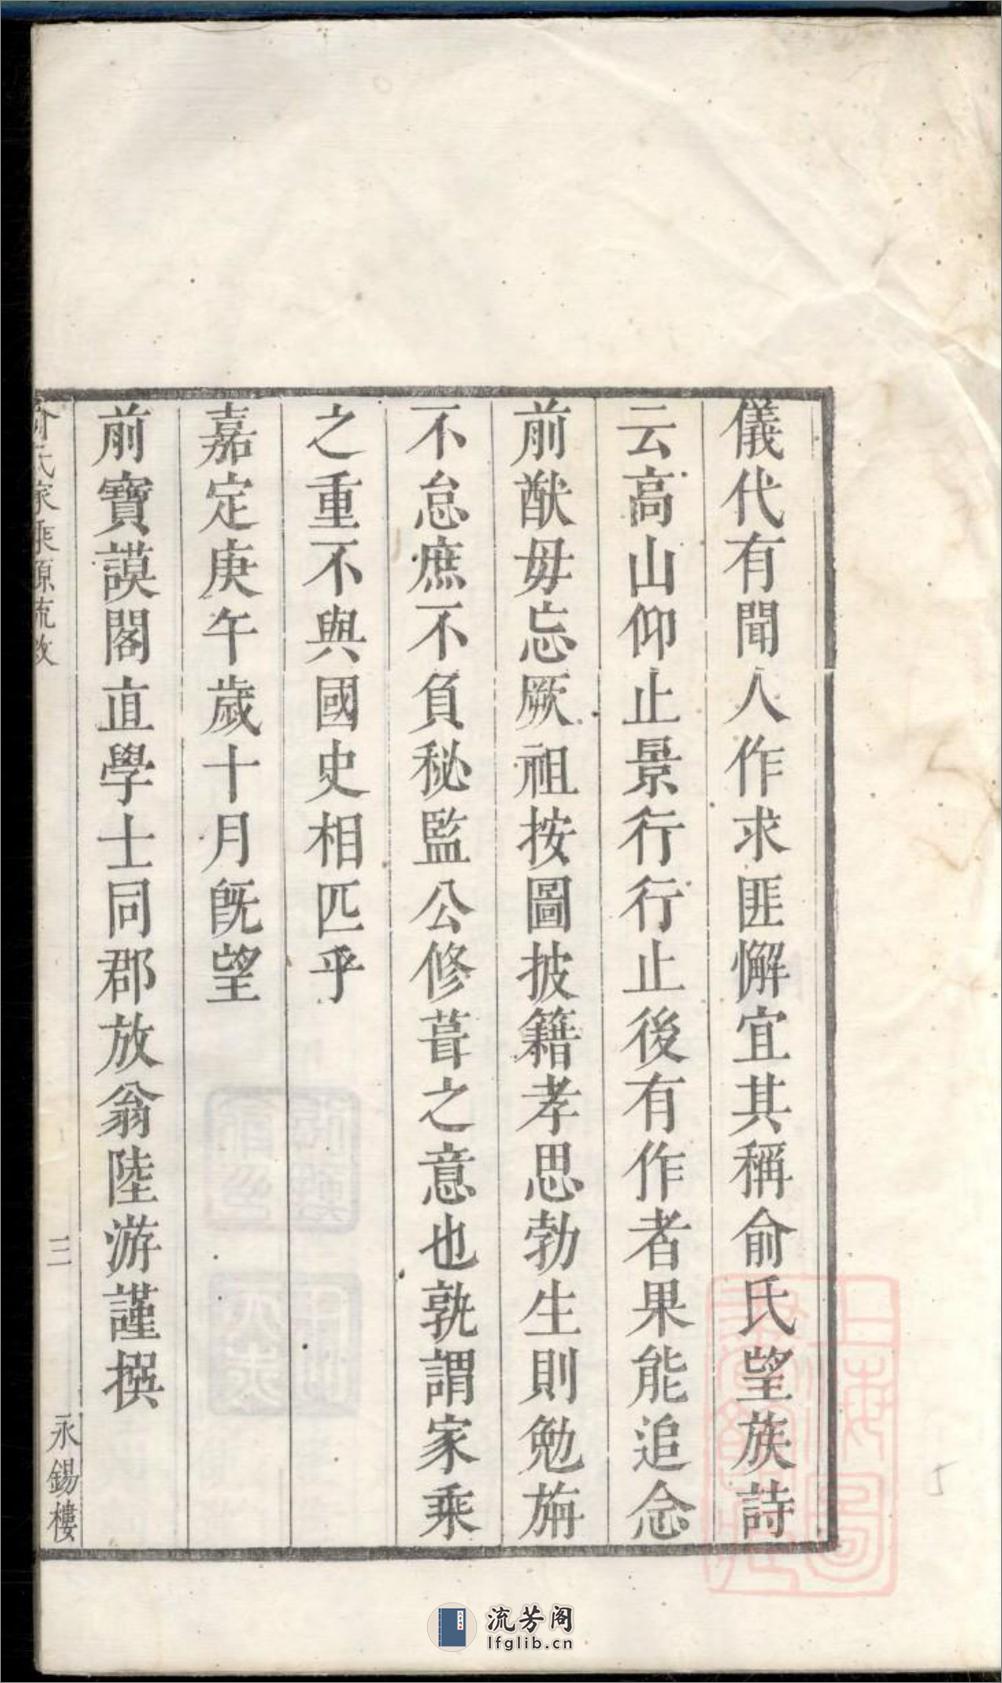 儀代有聞人作求匪懈宜其稱俞氏望族詩
云高山仰止景行行止後有作者果能追念
前猷毋忘厥祖按圖披籍孝思勃生則勉旃
不怠庶不負秘監公修葺之意也孰謂家乘
之重不與國史相匹乎
嘉定庚午歲十月旣望
前寶謨閣直學士同郡放翁陸游謹撰
氏家乘源流敘
三
永錫樓
流芳阁
lfglib.cn